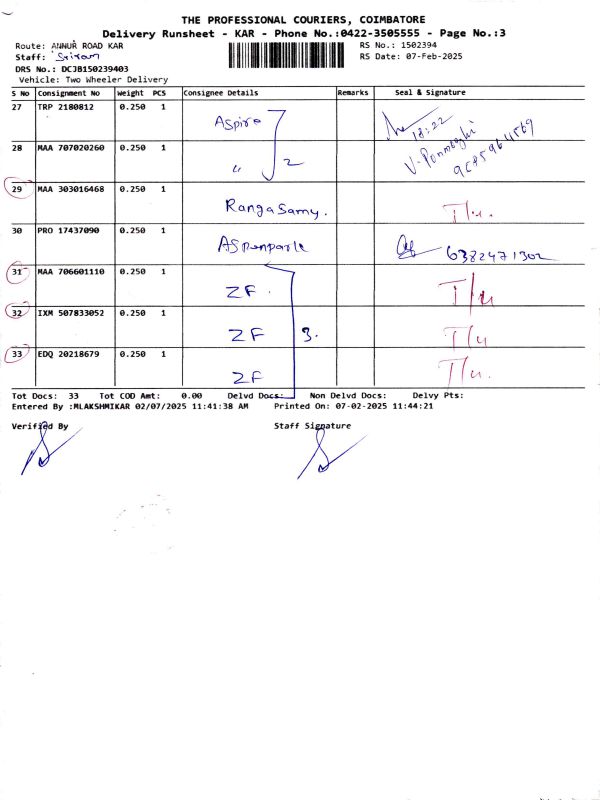 THE PROFESSIONAL COURIERS, COIMBATORE
Delivery Runsheet - KAR - Phone No.:0422-3505555 - Page No.:3
Route: ANNUR ROAD KAR RS No.: 1502394
Staff: Sriram RS Date: 07-Feb-2025
DRS No.: DCJB150239403
Vehicle: Two Wheeler Delivery
S No Consignment No Weight PCS Consignee Details Remarks Seal & Signature
27 TRP 2180812 0.250 1 Aspire 18:22
28 MAA 707020260 1 0.250 1 " 2 V. Ponmozhi
29 MAA 303016468 0.250 1 RangaSamy. I/u.
30 PRO 17437090 0.250 1 Aspenpark 6382471302
31 MAA 706601110 0.250 1 ZF. I/u
32 IXM 507833052 0.250 1 ZF 3. I/u
33 EDQ 20218679 0.250 1 ZF I/u.
Tot Docs: 33 Tot COD Amt: 0.00 Delvd Docs: Non Delvd Docs: Delvy Pts:
Entered By :MLAKSHMIKAR 02/07/2025 11:41:38 AM Printed On: 07-02-2025 11:44:21
Verified By Staff Signature